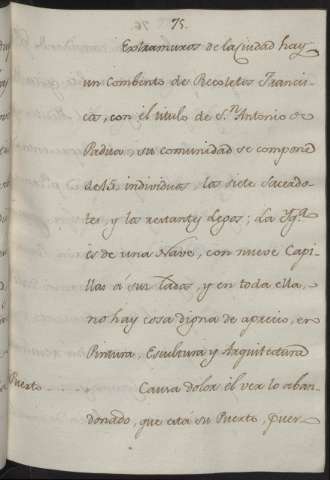 75.
Extramuros de la Ciudad hay
un Combento de Recoletos Francis-
cos, con el titulo de S.n Antonio de
Padua, su comunidad se compone
de 15 individuos, los siete Sacerdo-
tes, y los restantes Legos; La Ygª.
es de una Nave, con nueve Capi-
llas á sus lados, y en toda ella,
no hay cosa digna de aprecio, en
Pintura, Escultura y Arquitectura
Puerto Causa dolor el ver lo aban-
donado, que está su Puerto, pues-